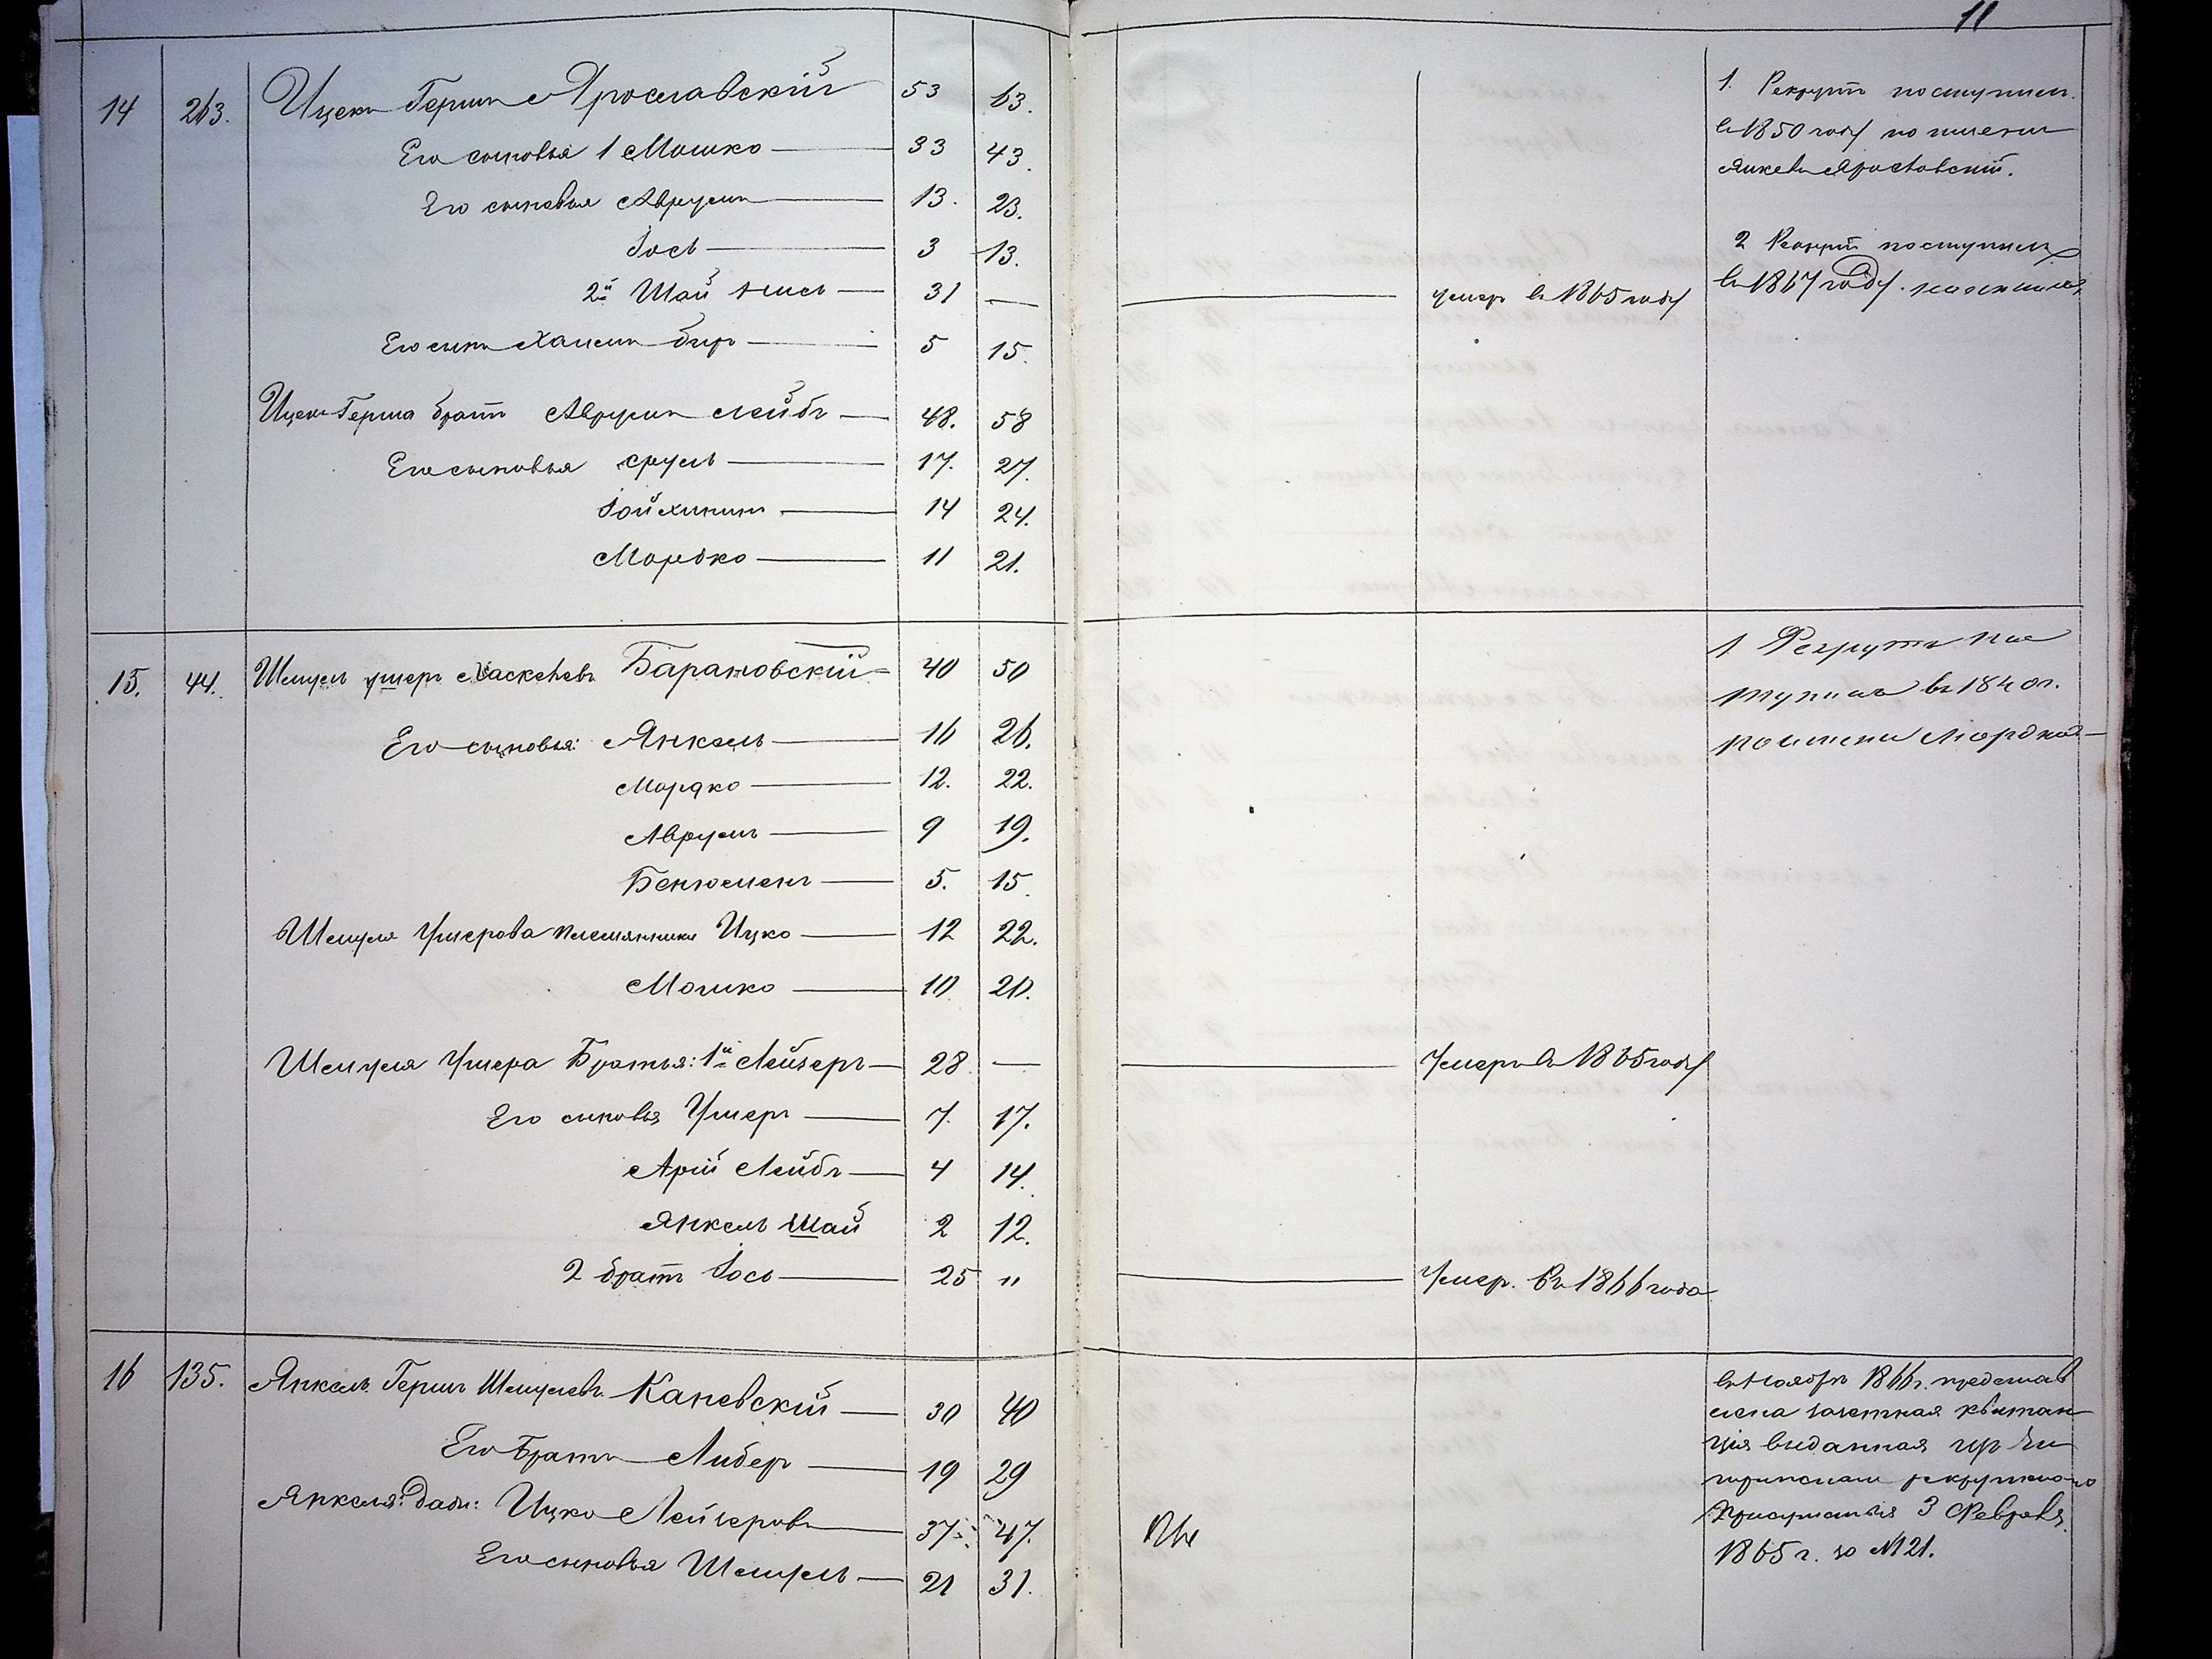 11
14 263. Ицек Герш Ярославскій 53 63.
Его сыновья 1 Мошко 33 43.
Его сыновья Аврумъ 13. 23.
Іось 3 13.
2й Шай 31 — умер в 1865 году
Его сынъ Хаимъ беръ 5 15.
Ицека Герша братъ Аврумъ Лейбъ 48. 58
Его сыновья Сруль 17. 27.
14 24.
Мордко 11 21.
1. Рекрутъ поступил
в 1850 году по имени
Янкель Ярославскій.
2 Рекрут поступилъ
в 1867 году.
15. 44. Шмуль Ушеръ Хаскелевъ Барановскій 40 50
Его сыновья: Янкель 16 26.
Мордко 12. 22.
Аврумъ 9 19.
Бенюменъ 5. 15
Шмуля Ушерова племянники Ицко 12 22.
Мошко 10 20.
Шмуля Ушера Братья: 1й Лейзеръ 28 — Умеръ в 1865 году
Его сыновья Ушеръ 7. 17.
Арій Лейбъ 4 14.
Янкель Шай 2 12.
2 братъ Іось 25 " Умер. въ 1866 года
1 Рекрутъ пос
тупилъ въ 1840 г.
по имени Мордко
16 135. Янкель Гершъ Шмулевъ Каневскій 30 40
Его Братъ Либер 19 29
Янкеля: дядя: Ицко Лейзеровъ 37 47.
Его сыновья Шмуль 21 31.
в Ноябре 1866 г. представ
лена зачетная квитан
ція выданная
рекрутскаго
Присутствія 3 Февраля
1865 г. за №21.